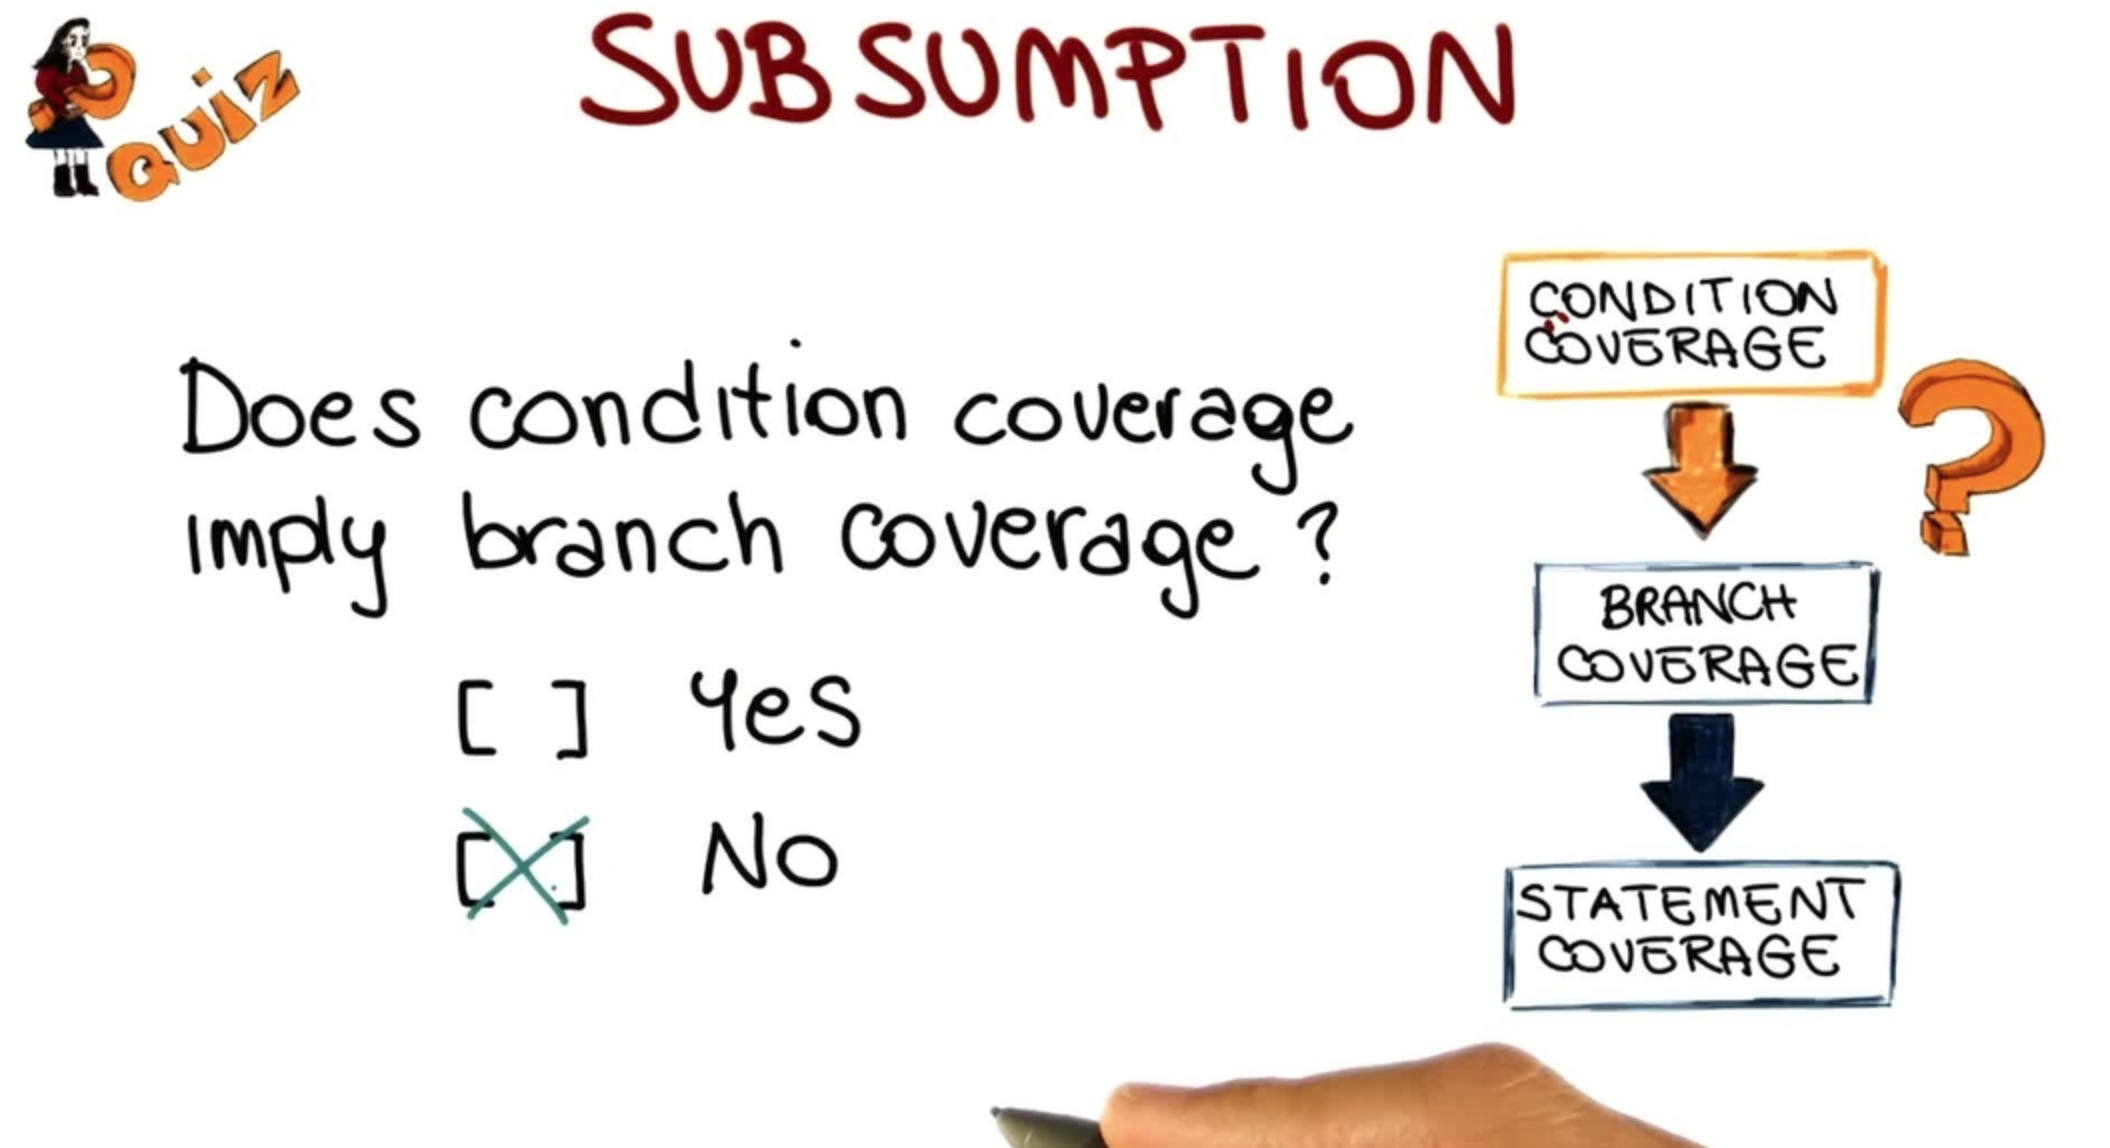 QUIZ
SUBSUMPTION
Does condition coverage
imply branch coverage?
[ ] Yes
[X] No
CONDITION
COVERAGE
?
BRANCH
COVERAGE
STATEMENT
COVERAGE